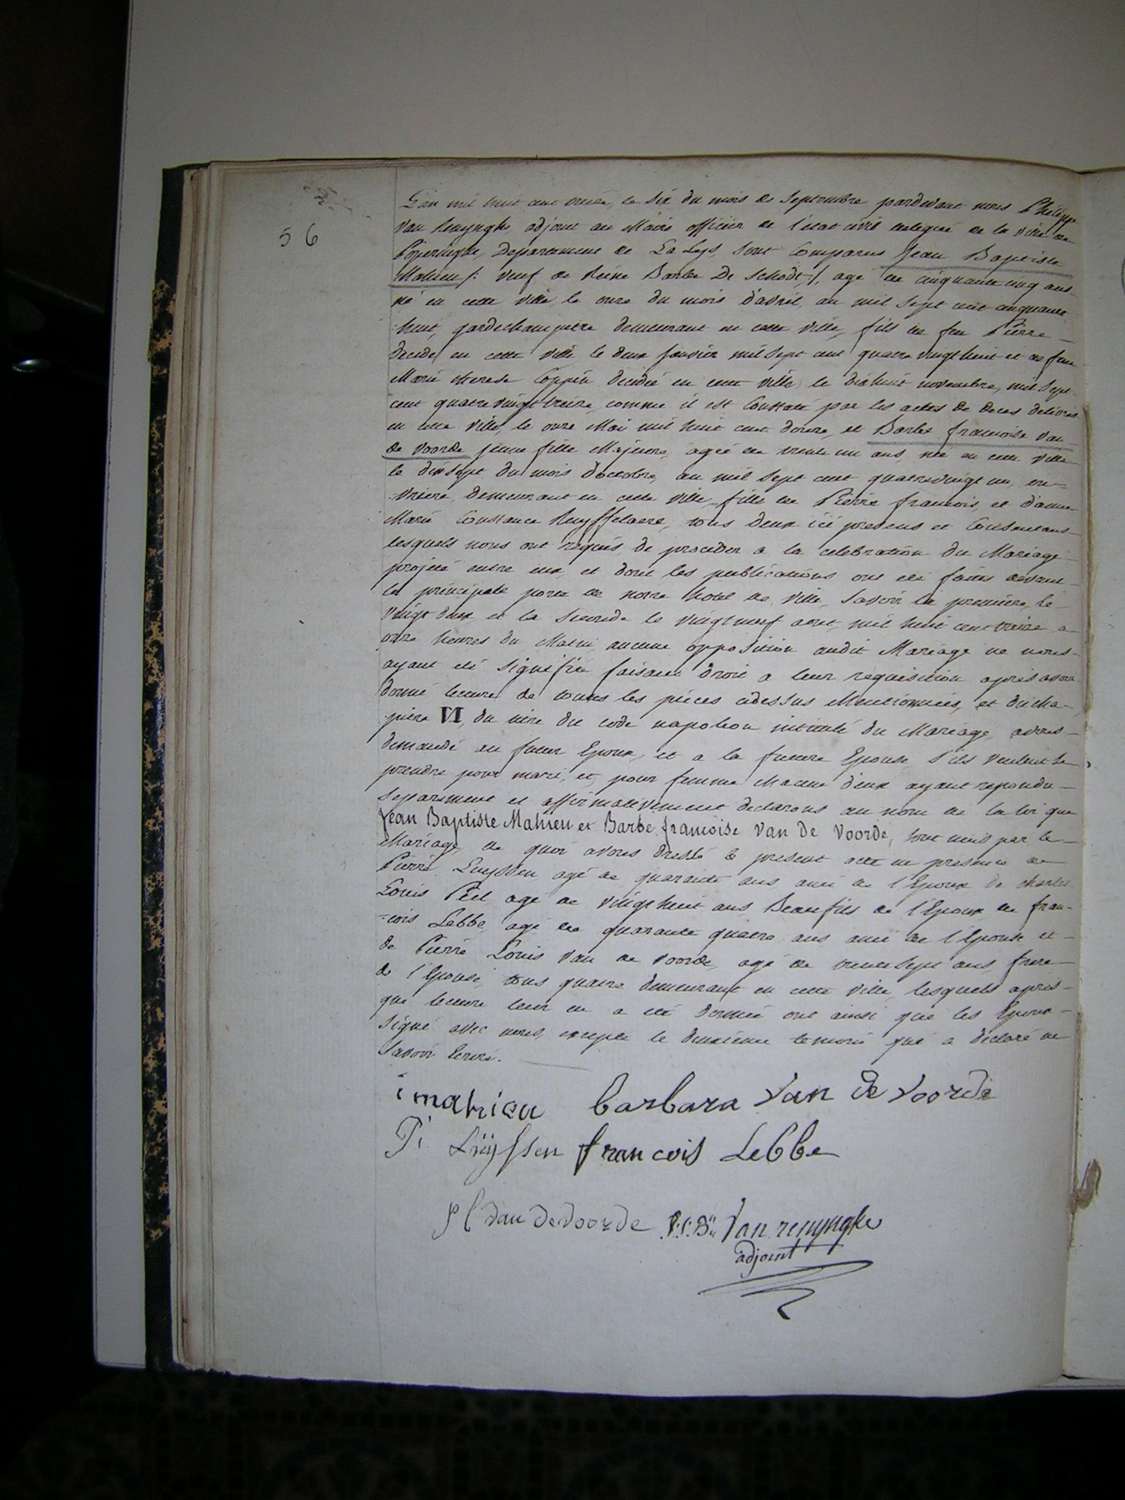 56
L'an mil huit cent treize, le six du mois de Septembre pardevant nous Philippe
Van Renynghe adjoint au Maire officier de l'état civil delegué de la ville de
Poperinghe Departement de La Lys, sont comparus Jean Baptiste
Mahieu /: veuf de Reine Barbe De Schodt :/, agé de cinquante cinq ans
né en cette ville le onze du mois d'avril an mil sept cent cinquante
huit, gardechampetre demeurant en cette ville, fils de feu Pierre
decedé en cette ville le deux Janvier mil sept cent quatre vingt huit et de feue
Marie therese Coppin decedée en cette ville le dixhuit novembre, mil sept
cent quatrevingt treize, comme il est constaté par les actes de deces delivrés
en cette ville, le onze Mai mil huit cent douze, et Barbe francoise Van
de Voorde jeune fille Majeure, agée de trente un ans, née en cette ville
le dixsept du mois d'octobre an mil sept cent quatrevingt un, ou-
vriere, demeurant en cette ville fille de Pierre francois, et d'anne
Marie Constance Ruyffelaere, tous deux ici presens et Consentans
lesquels nous ont requis de proceder a la celebration du Mariage
projeté entre eux et dont les publications ont été faites devant
la principale porte de notre hotel de ville, Savoir la premiere, le
vingt deux et la seconde le vingtneuf aout, mil huit cent treize a
onze heures du Matin aucune opposition audit Mariage ne nous
ayant été signifiée faisant droit a leur requisition apres avoir
donné lecture de toutes les pieces cidessus Mentionnées, et du cha-
pitre VI du titre du code napoleon intitulé du Mariage, avons
demandé au futur Epoux, et a la future Epouse s'ils veulent se
prendre pour mari, et pour femme chacun d'eux ayant repondu
Separement et affirmativement declarons au nom de la loi que
Jean Baptiste Mahieu et Barbe francoise Van De Voorde, sont unis par le
Mariage, de quoi avons dressé le present acte en presence de
Pierre Luyssen agé de quarante ans ami de l'Epoux de charles
Louis Peel agé de vingthuit ans Beaufils de l'Epoux de fran-
-cois Lebbe, agé de quarante quatre ans ami de l'Epouse et
de Pierre Louis Van de Voorde, agé de trentesept ans frere
de l'Epouse, tous quatre demeurant en cette ville, lesquels apres
que lecture leur en a été donnée ont ainsi que les Epoux
signé avec nous, excepté le deuxieme temoin qui a declaré ne
savoir Ecrire.
i mahieu barbara Van de Voorde
Pi Luÿssen francois Lebbe
P l van de voorde P:J:Bte Van renynghe
adjoint